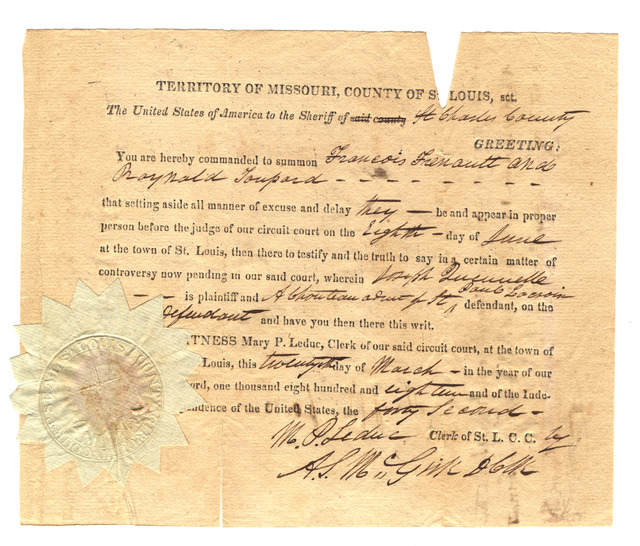 TERRITORY OF MISSOURI, COUNTY OF St. LOUIS, sct.
The United States of America to the Sheriff of said county St Charles County
GREETING:
You are hereby commanded to summon Francois and
Raynald
that setting aside all manner of excuse and delay they — be and appear in proper
person before the judge of our circuit court on the Eighth - day of June
at the town of St. Louis, then there to testify and the truth to say in a certain matter of
controversy now pending in our said court, wherein Joseph
— — is plaintiff and A Chouteau admr of Paul Lacroix defendant, on the
defendant and have you then there this writ.
WITNESS Mary P. Leduc, Clerk of our said circuit court, at the town of
Louis, this twentyth day of March - in the year of our
ord, one thousand eight hundred and eighteen and of the Inde-
pendence of the United States, the forty second -
M. P. Leduc Clerk of St. L. C. C. by
A. S. Mc Girk D Clk